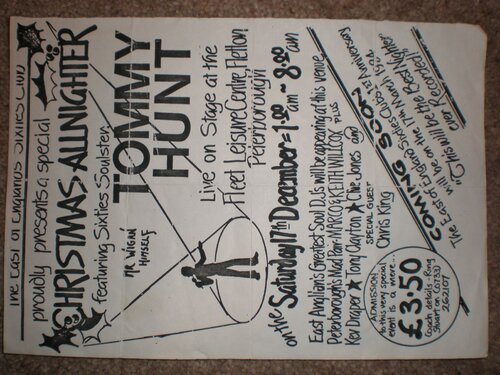 The East of Englands Sixties Club
proudly presents a special
CHRISTMAS ALLNIGHTER
Featuring Sixties Soulster
TOMMY
HUNT
MR WIGAN
HIMSELF
Live on Stage at the
Fleet Leisure Centre Fletton
Peterborough
on the Saturday 17th December = 1:00 am ~ 8:00 am
East Anglia's Greatest Soul DJs will be appearing at this venue
Peterborough's Mad Pair-MARCO & KEITH WILLCOX PLUS
Kev Draper ★ Tony Clayton ★ Clive Jones and
SPECIAL GUEST
Chris King
ADMISSION
to this very special
event is a mere...
£3.50
Coach details - Ring
Stuart on (0733)
262107
COMING SOON
The East of Englands Sixties Clubs 1st Anniversary
will be on the 17th March 1984
"This will be the Best Nighter
ever Recorded"